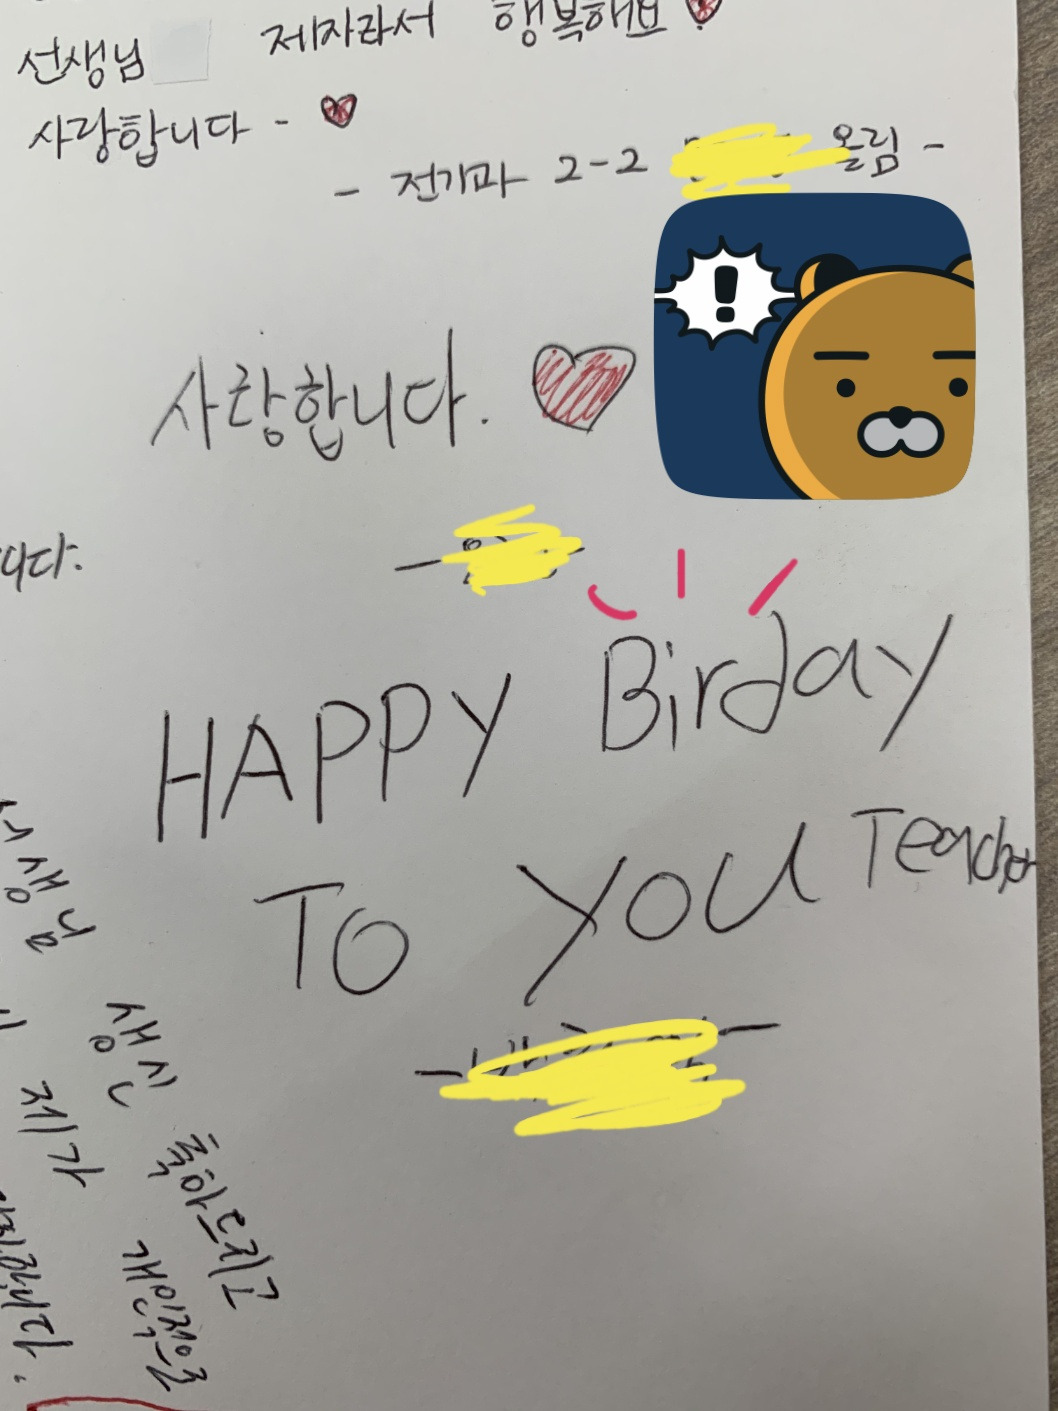 선생님 제자라서 행복해요
사랑합니다 -
- 전기과 2-2 올림 -
사랑합니다.
!
니다.
HAPPY Birday
TO YOU Teacher
생신
축하드리고
제가
개인적으로